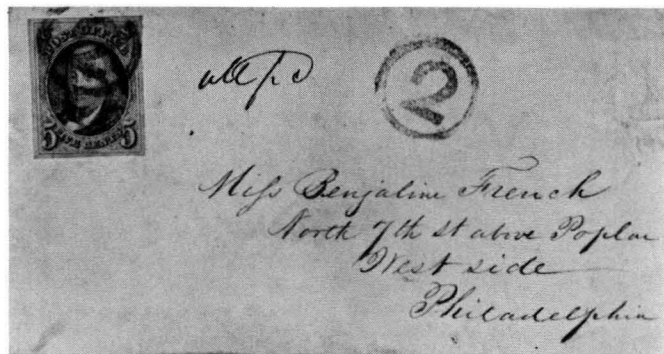 POST OFFICE
5 FIVE CENTS 5
all pd
2
Miss Benjaline French
North 7th st above Poplar
West side
Philadelphia